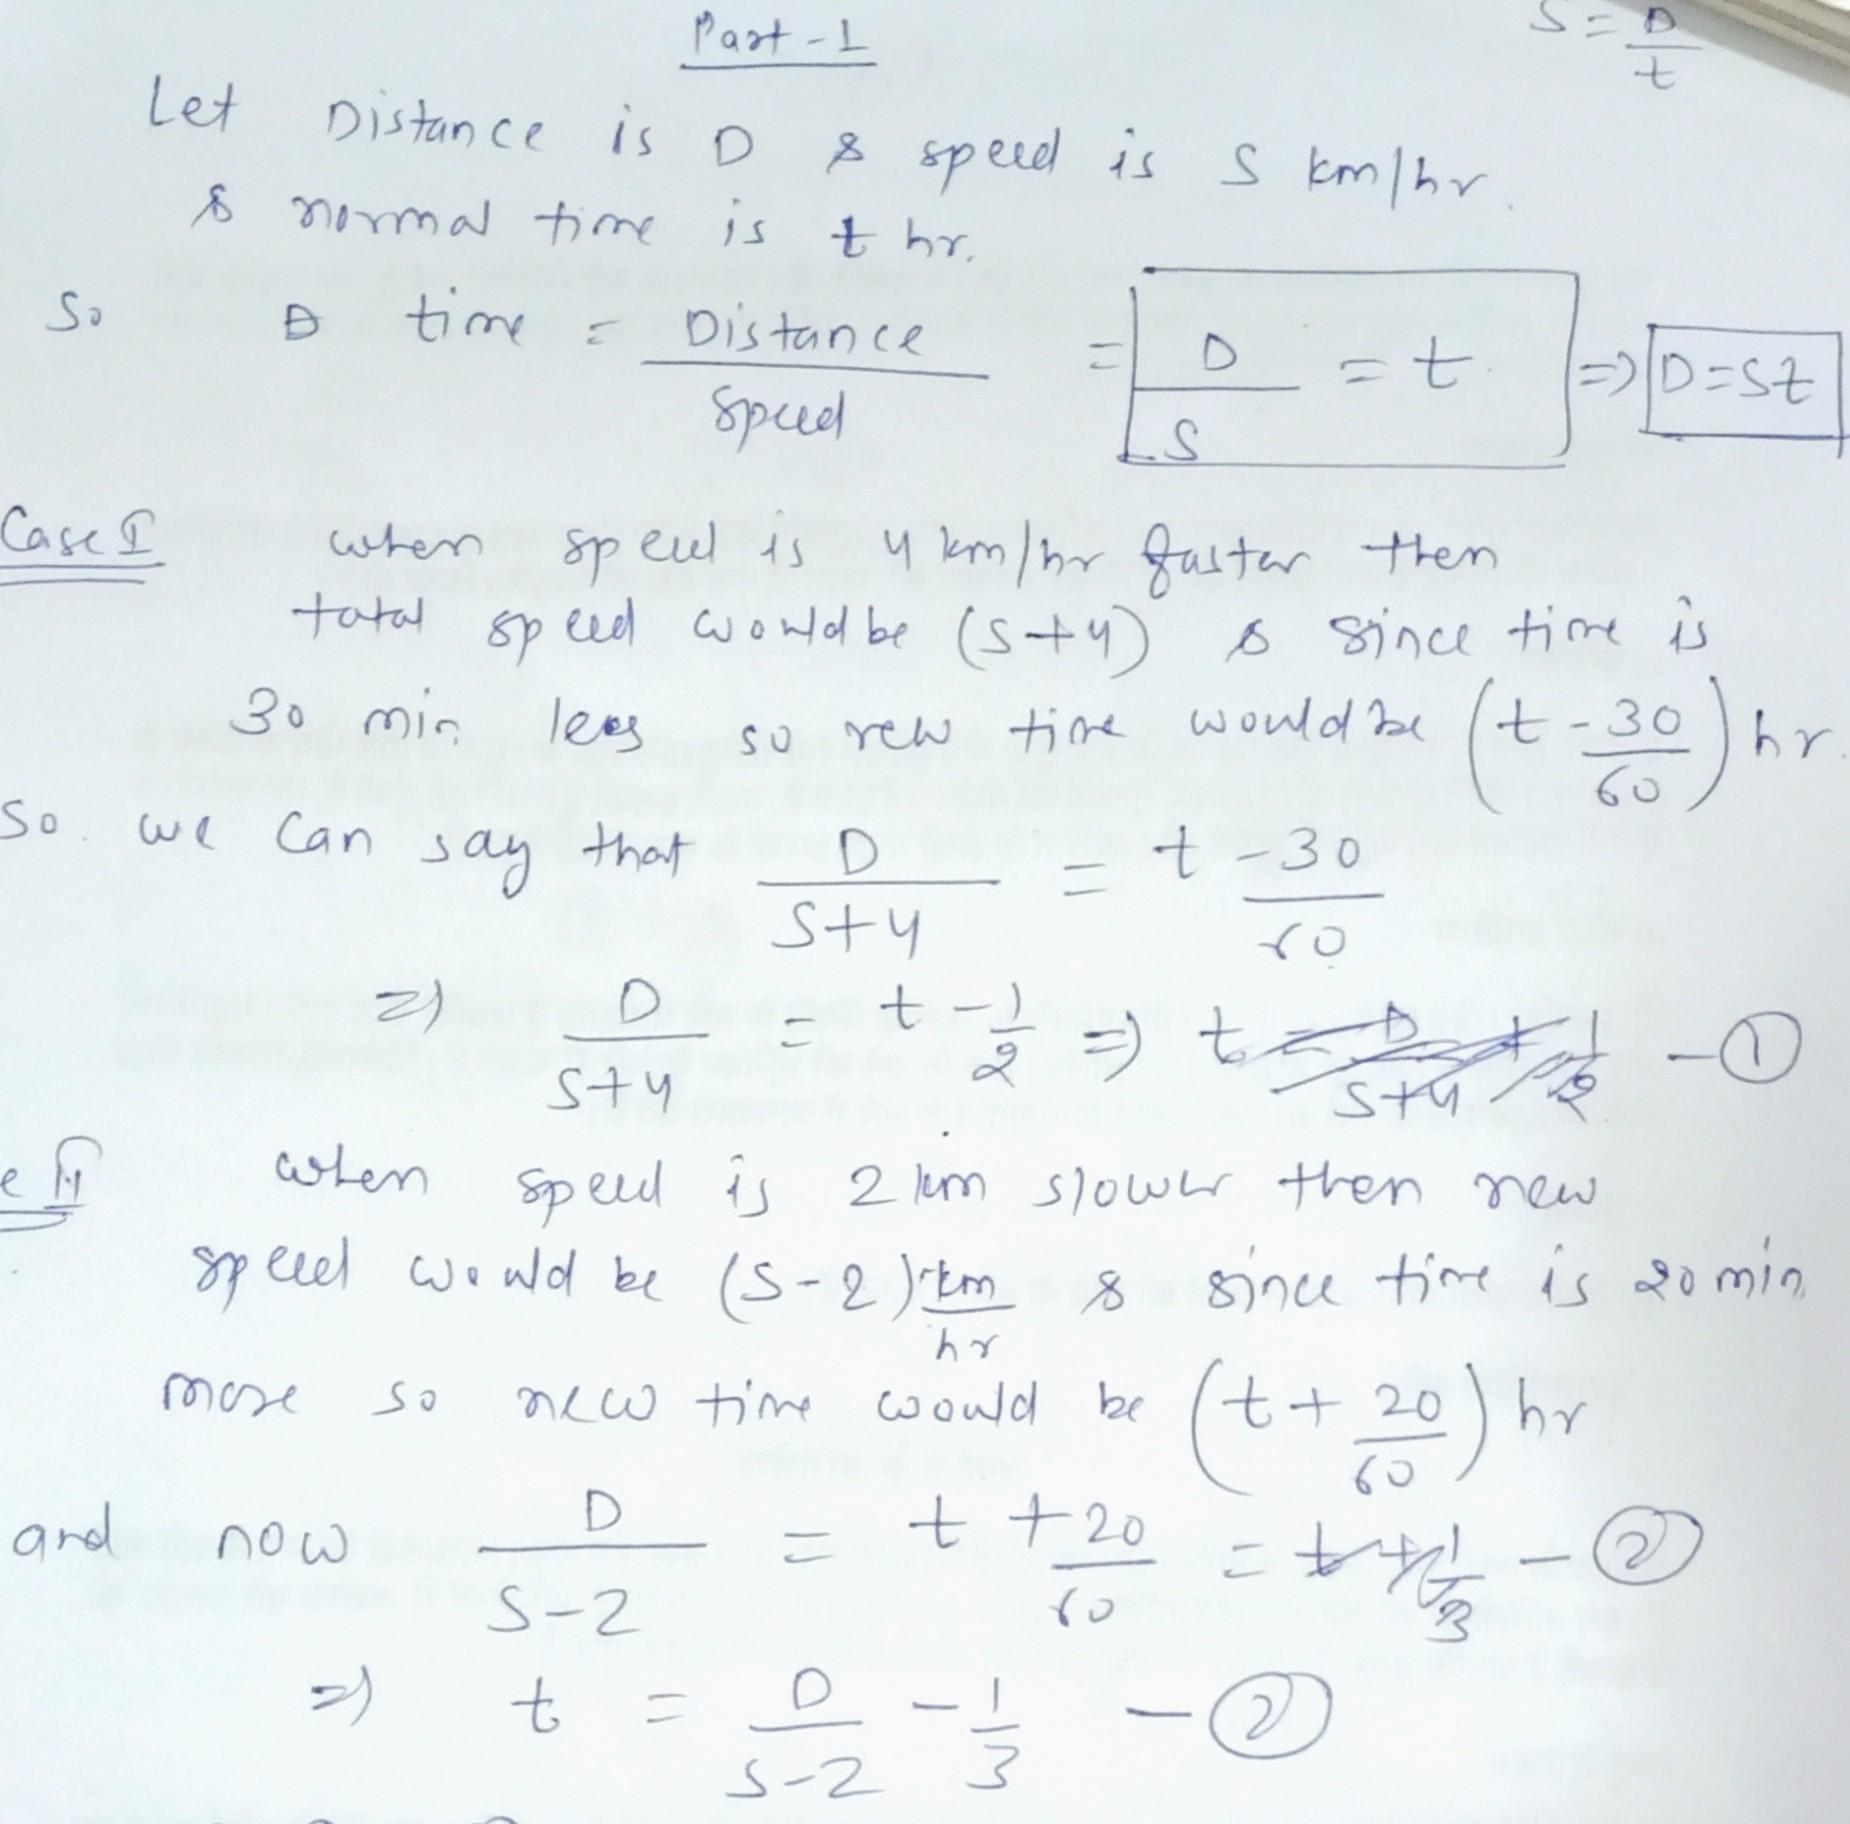 Part-1
S = D/t
Let Distance is D & speed is S km/hr.
& normal time is t hr.
So D time = Distance/Speed = D/S = t => D=St
Case I when speed is 4 km/hr faster then
total speed would be (S+4) & since time is
30 min less so new time would be (t - 30/60) hr.
So we can say that D/(S+4) = t - 30/60
=> D/(S+4) = t - 1/2 => t = D/(S+4) + 1/2 - ①
e II when speed is 2 km slower then new
speed would be (S-2) km/hr & since time is 20 min
more so new time would be (t + 20/60) hr
and now D/(S-2) = t + 20/60 = t + 1/3 - ②
=> t = D/(S-2) - 1/3 - ②